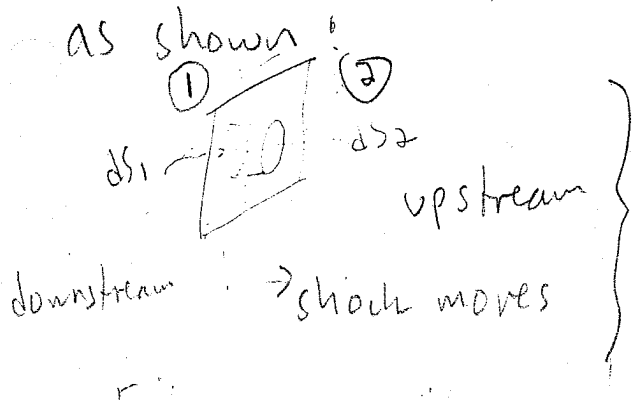 as shown :
① ②
dS₁ dS₂
upstream
downstream → shock moves